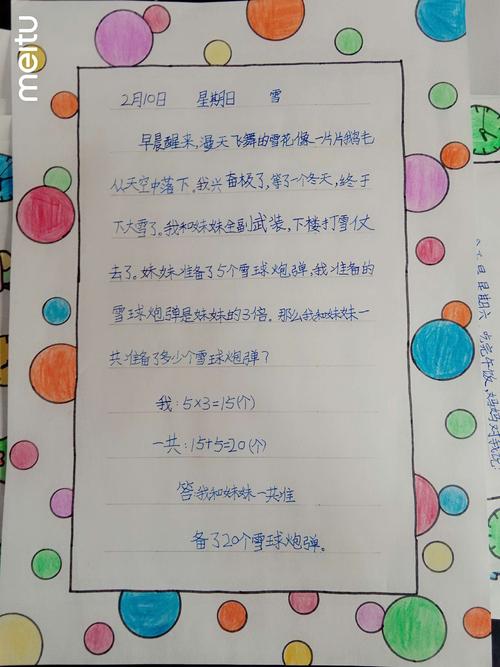 meitu
2月10日 星期日 雪
早晨醒来,漫天飞舞的雪花像一片片鹅毛
从天空中落下。我兴奋极了,等了一个冬天,终于
下大雪了。我和妹妹全副武装,下楼打雪仗
去了。妹妹准备了5个雪球炮弹,我准备的
雪球炮弹是妹妹的3倍。那么我和妹妹一
共准备了多少个雪球炮弹?
我:5×3=15(个)
一共:15+5=20(个)
答:我和妹妹一共准
备了20个雪球炮弹。
星期六 吃完午饭,妈妈对我说